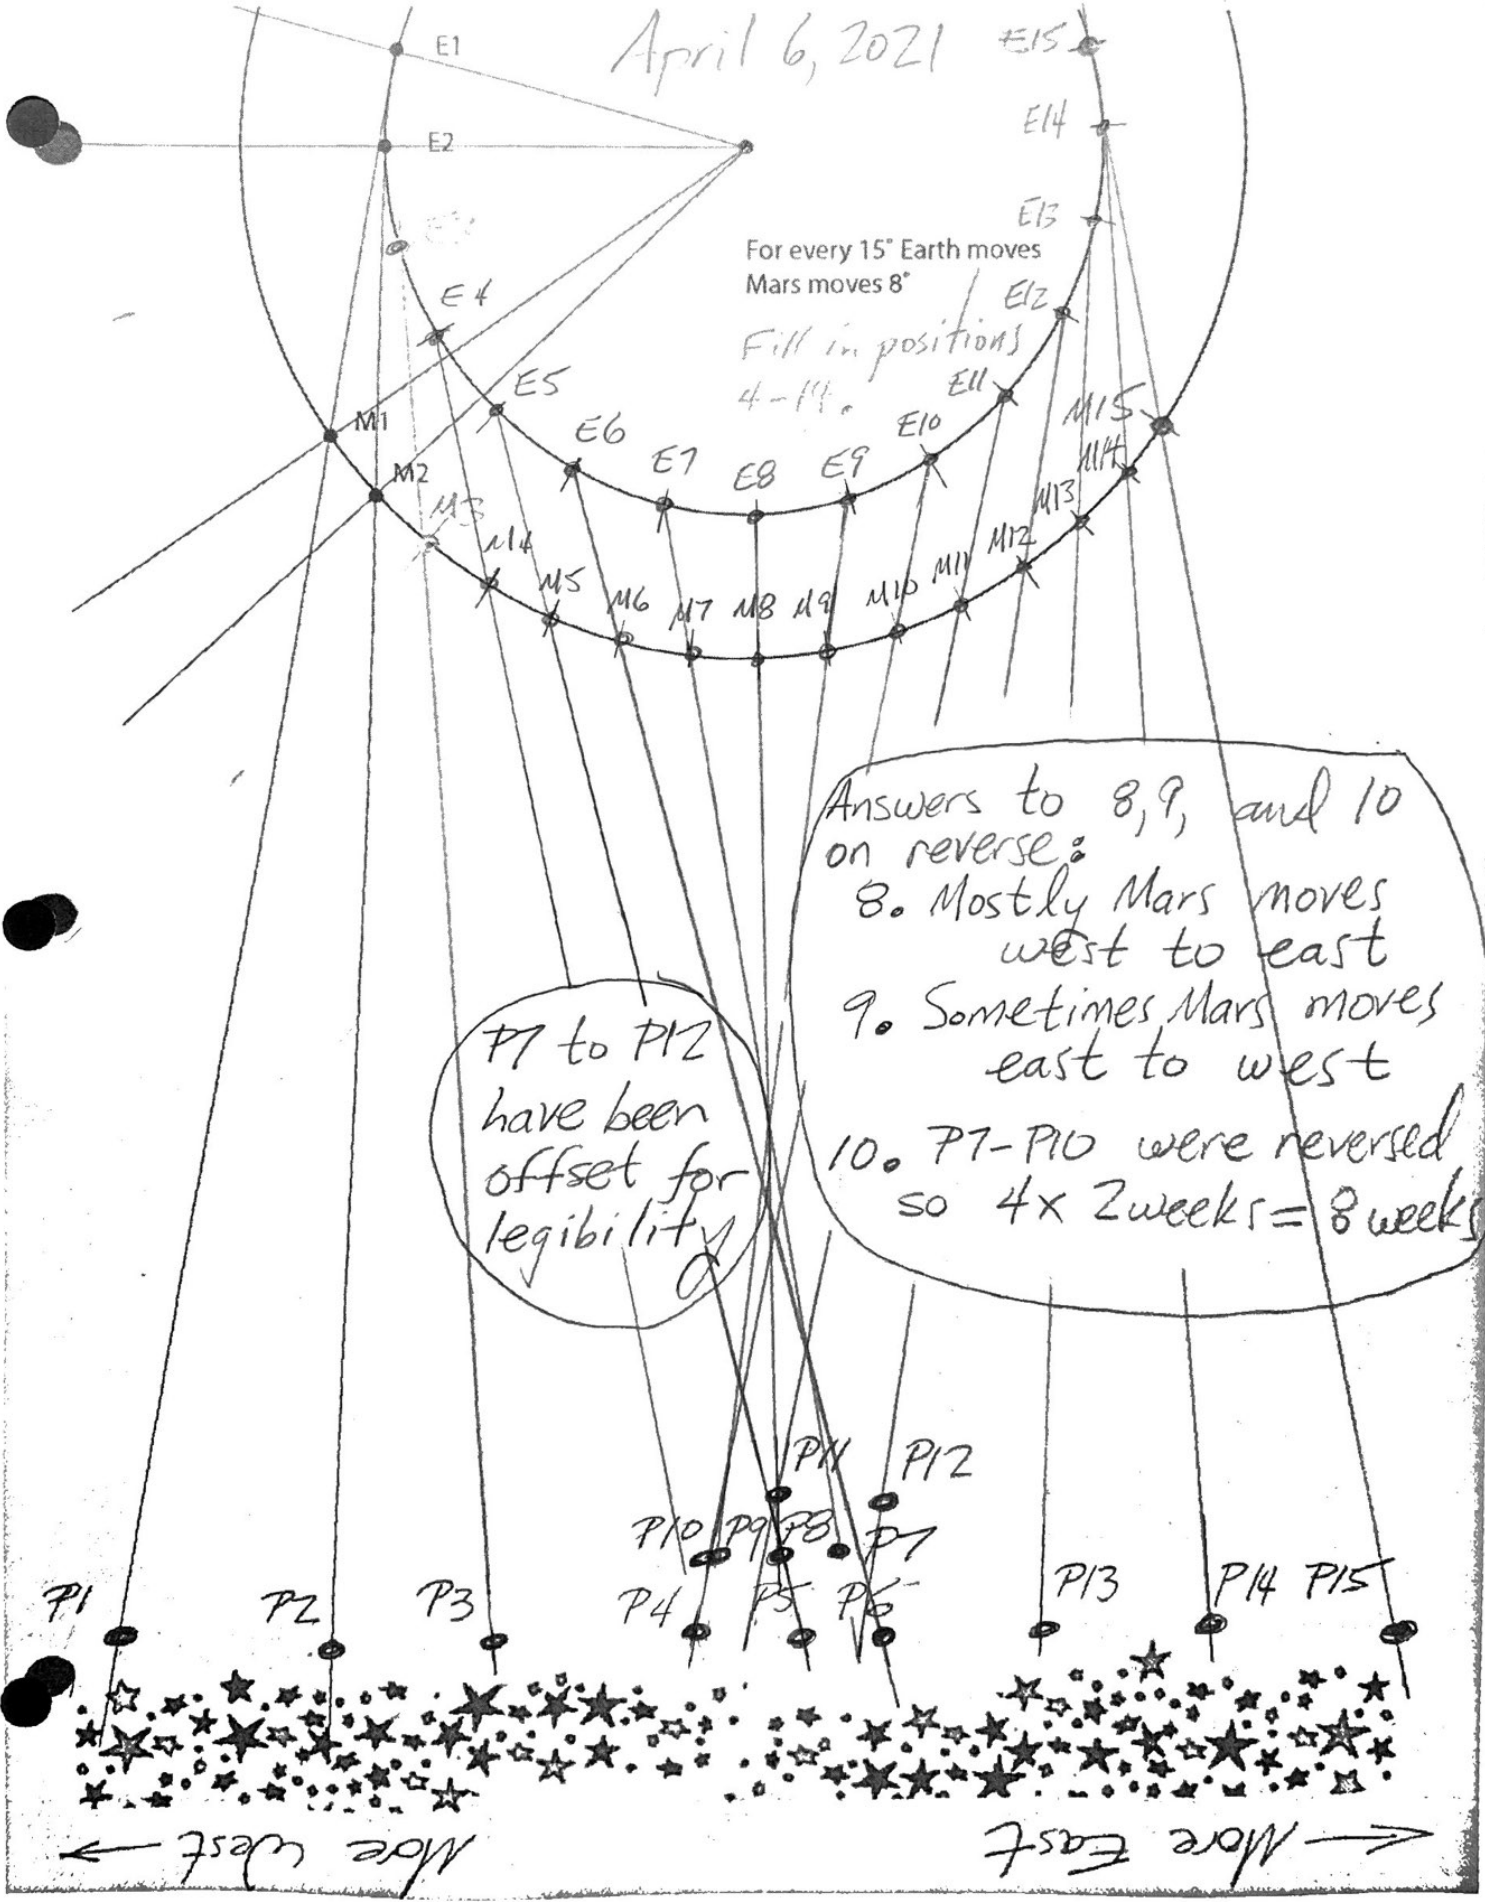 April 6, 2021
E1
E15
E14
E2
E13
For every 15° Earth moves
Mars moves 8°
E4
E12
Fill in positions
4-14.
E5
E11
M1
M15
E6
E10
E7
E8
E9
M2
M14
M3
M13
M4
M12
M5
M11
M6
M7
M8
M9
M10
Answers to 8, 9, and 10
on reverse:
8. Mostly Mars moves
west to east
9. Sometimes Mars moves
east to west
10. P7-P10 were reversed
so 4x 2 weeks = 8 weeks
P7 to P12
have been
offset for
legibility
P11
P12
P10
P9
P8
P7
P1
P2
P3
P4
P5
P6
P13
P14
P15
← More West
More East →